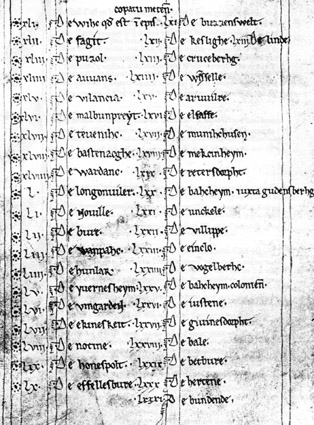 coparu meten.
xli De wihe qd est i cpsi. lxi De burzenswelt.
xlii De fagit. lxii De keslighe. lxiii De linde.
xliii De puzol. lxiii De cruceberhg.
xliiii De auuans. lxiiii De wisselle.
xlv De vilancia. lxv De aruuire.
xlvi De malbunpreyt. lxvi De elsaffe.
xlvii De teuenihc. lxvii De munihchusen.
xlviii De bastenacghe. lxviii De mekeinheym.
De wardanc. lxix De retersdorpht.
l. De longonuiler. lxx. De bahcheym. iuxta gudensberhg
li. De nouille. lxxi. De unckele.
lii. De burt. lxxii. De villippe.
liii. De lxxiii. De einclo.
liiii. De hunlar. lxxiiii. De vogelberhc.
lv. De yuernesheym. lxxv. De bahcheym.
lvi. De vingarden. lxxvi. De iustene.
lvii. De ekineskeit. lxxvii. De giuinesdorpht.
lviii. De notine. lxxviii. De bale.
lix. De honespolt. lxxix. De betbure.
lx. De effellesbure. lxxx. De hertene.
lxxxi. De bundende.